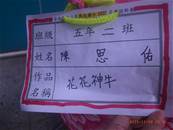 班級 五年二班
姓名 陳思佑
作品名稱 花花神牛